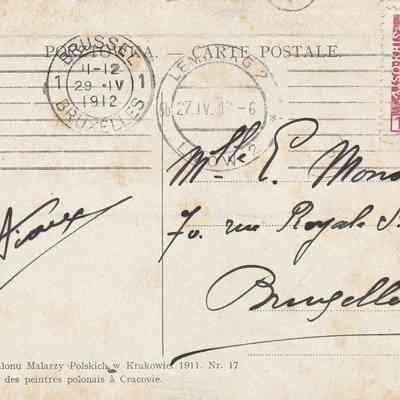 POCZTÓWKA. — CARTE POSTALE.
BRUSSEL
11-12
1 29 IV 1
1912
BRUXELLES
LEMBERG 2
27.IV.12-6
LWÓW 2
Mlle E.
70. rue Royale S.
Bruxelle
lonu Malarzy Polskich w Krakowie. 1911. Nr. 17
des peintres polonais à Cracovie.